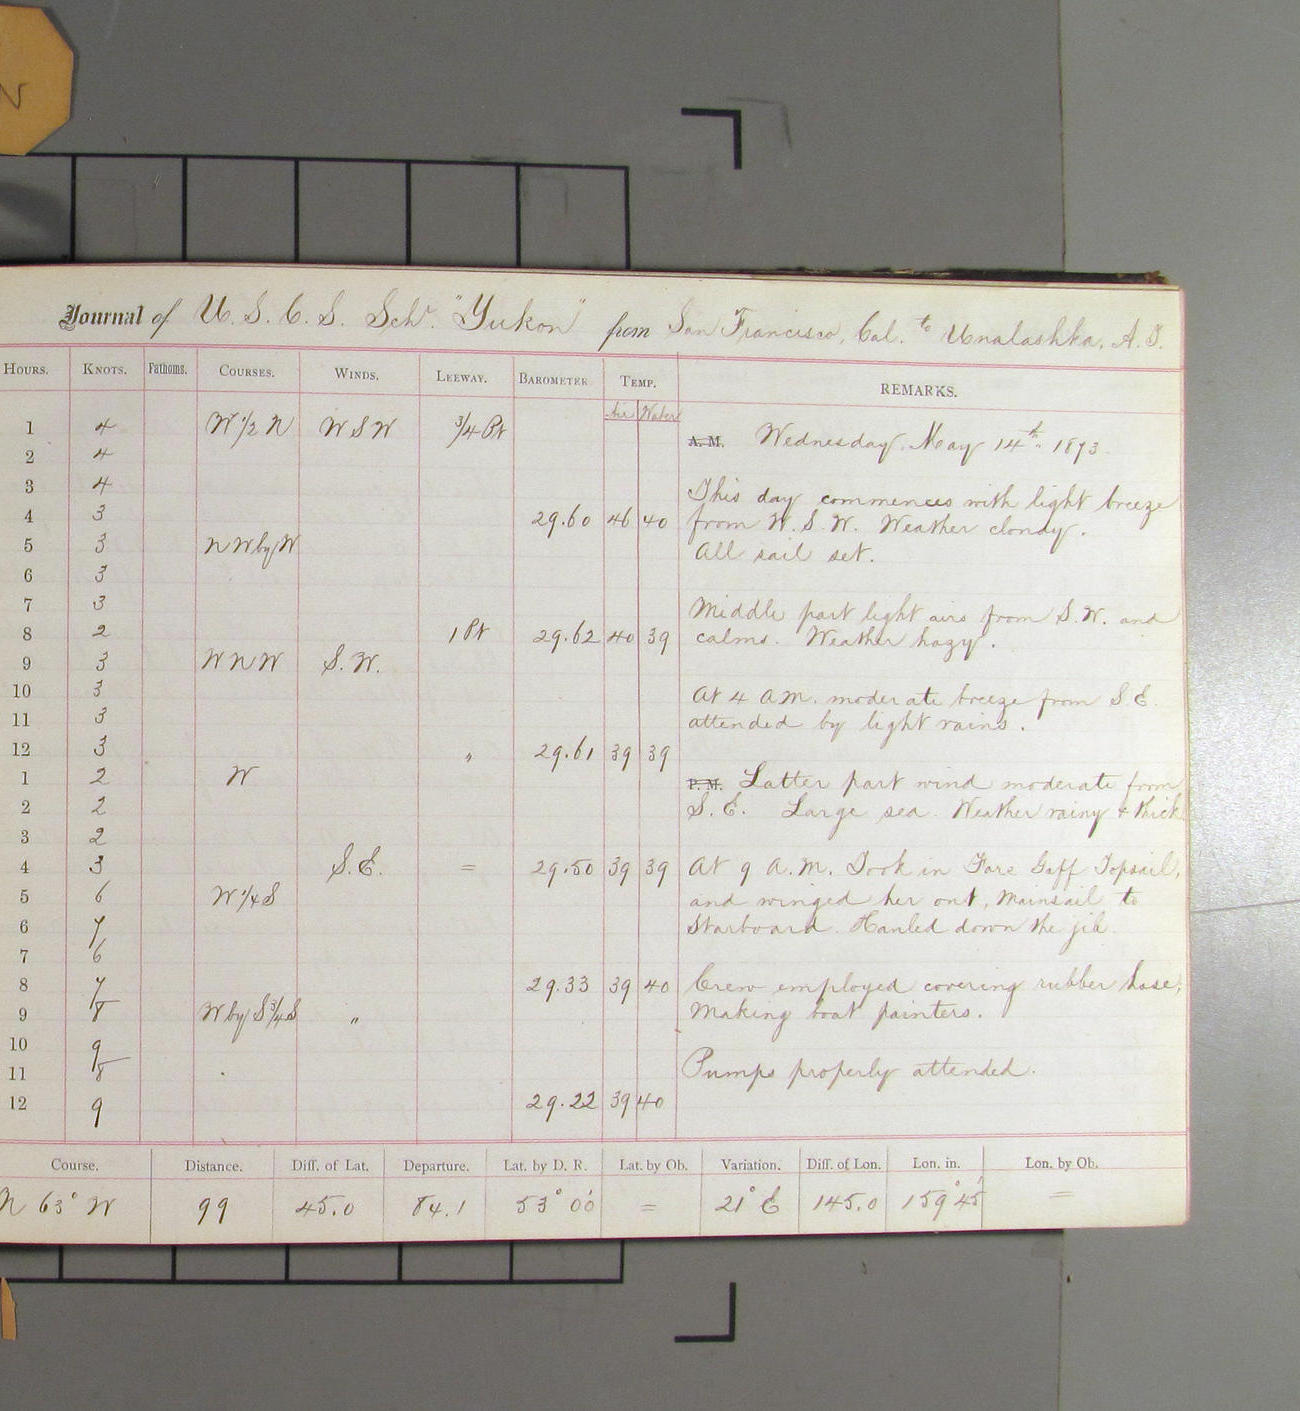 N
Journal of U. S. C. S. Schr. "Yukon" from San Francisco, Cal. to Unalashka, A. T.
HOURS. KNOTS. Fathoms. COURSES. WINDS. LEEWAY. BAROMETER TEMP. REMARKS.
Air Water
1 4 W 1/2 N W S W 3/4 Pt A. M. Wednesday, May 14th 1873.
2 4
3 4 This day commences with light breeze
4 3 29.60 46 40 from W. S. W. Weather cloudy.
5 3 N W by W All sail set.
6 3
7 3 Middle part light airs from S. W. and
8 2 1 Pt 29.62 40 39 calms. Weather hazy.
9 3 W N W S. W.
10 3 At 4 A.M. moderate breeze from S. E.
11 3 attended by light rains.
12 3 " 29.61 39 39
1 2 W P. M. Latter part wind moderate from
2 2 S. E. Large sea. Weather rainy & thick
3 2
4 3 S. E. = 29.50 39 39 At 9 A. M. Took in Fore Gaff Topsail,
5 6 W 1/4 S and winged her out, mainsail to
6 7 starboard. Hauled down the jib.
7 6
8 7 29.33 39 40 Crew employed covering rubber hose,
9 8 W by S 3/4 S " Making boat painters.
10 9
11 8 Pumps properly attended.
12 9 29.22 39 40
Course. Distance. Diff. of Lat. Departure. Lat. by D. R. Lat. by Ob. Variation. Diff. of Lon. Lon. in. Lon. by Ob.
N 63° W 99 45.0 84.1 53° 00' = 21° E 145.0 159° 45' =